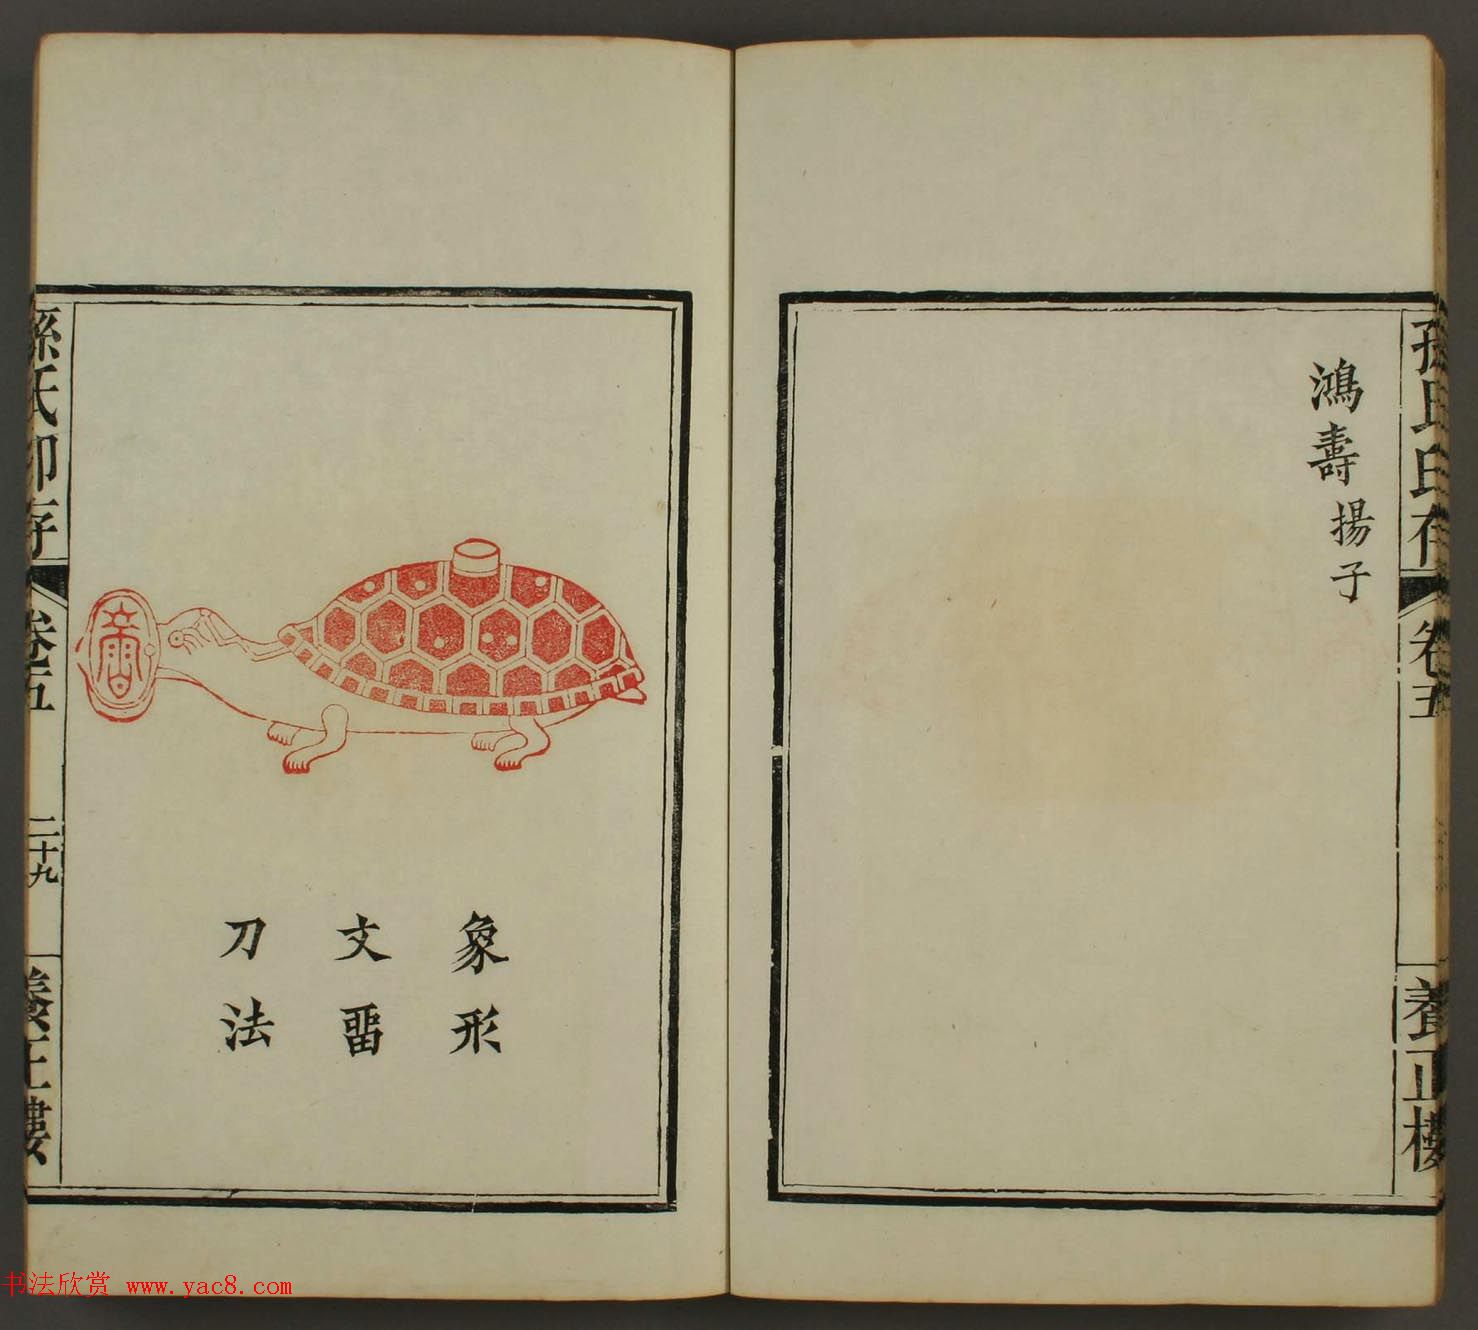 孫氏印存
卷五
養正樓
鴻壽
揚子
象形
文畱
刀法
孫氏印存
卷五
二十九
養正樓
书法欣赏 www.yac8.com